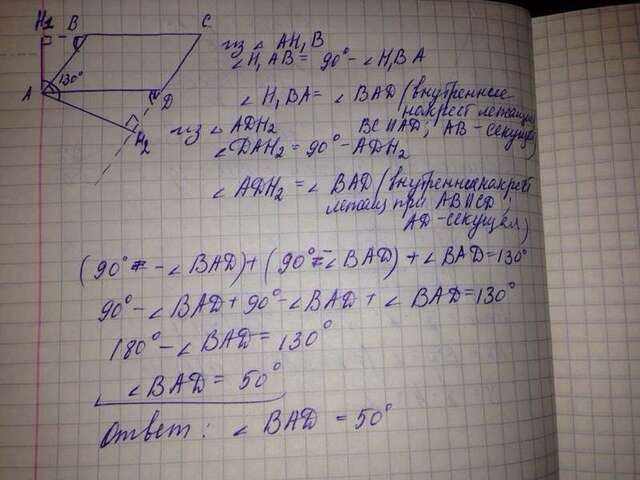 H1 B C
130°
A D
H2
из △ AH₁B
∠ H₁AB = 90° - ∠ H₁BA
∠ H₁BA = ∠ BAD (внутренние
накрест лежащие
BC || AD, AB - секущая)
из △ ADH₂
∠ DAH₂ = 90° - ADH₂
∠ ADH₂ = ∠ BAD (внутренние накрест
лежащ при AB || CD,
AD - секущая)
(90° - ∠ BAD) + (90° - ∠ BAD) + ∠ BAD = 130°
90° - ∠ BAD + 90° - ∠ BAD + ∠ BAD = 130°
180° - ∠ BAD = 130°
∠ BAD = 50°
Ответ: ∠ BAD = 50°